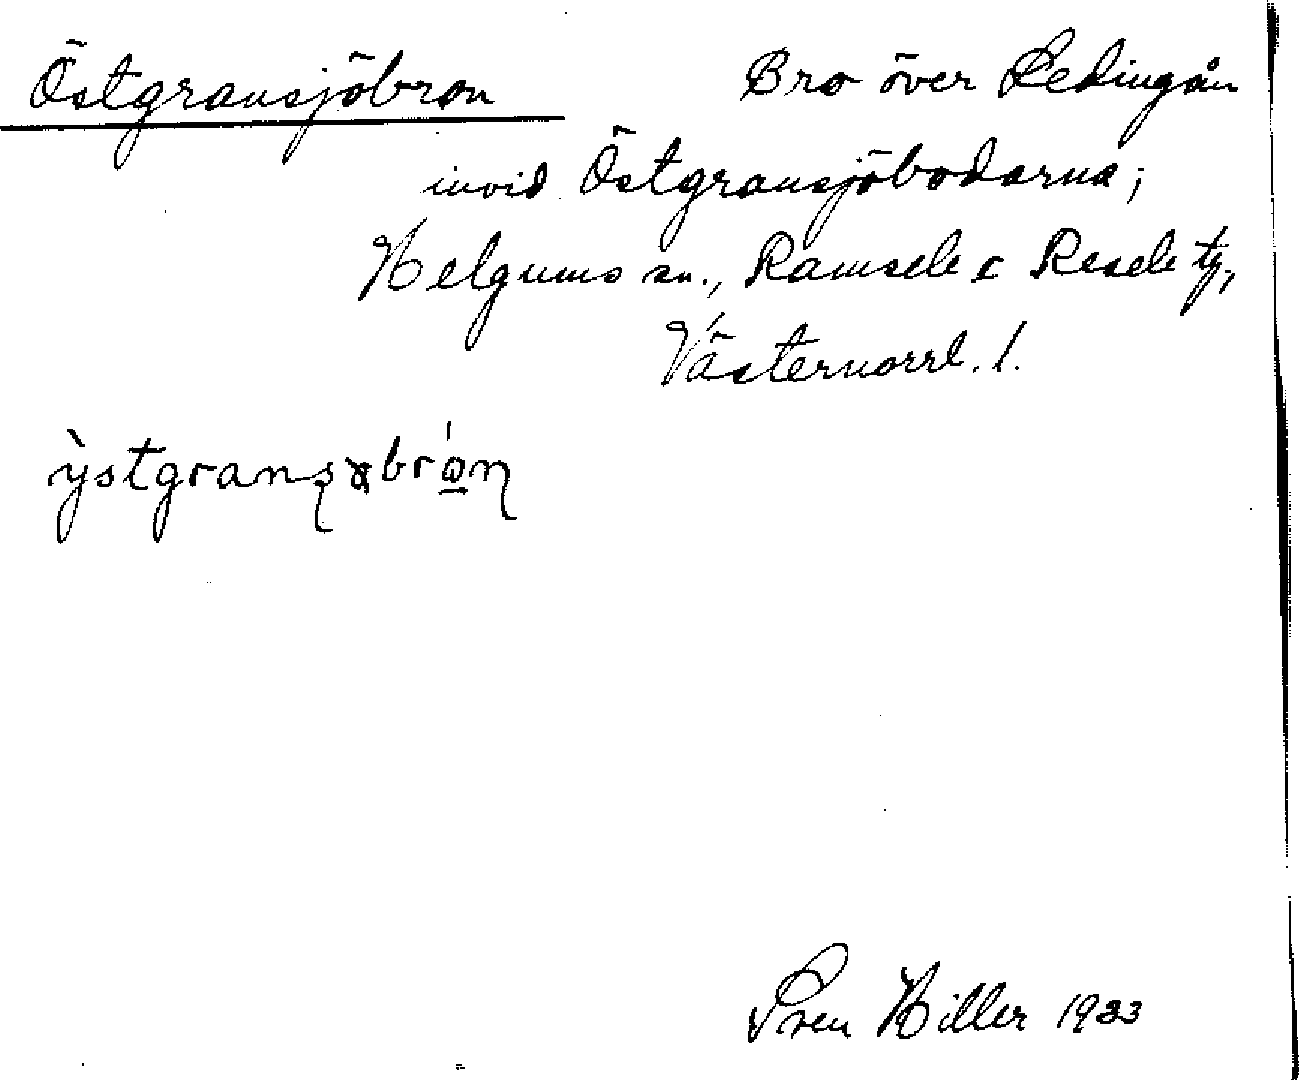 Östgransjöbron Bro över Ledingån
invid Östgransjöbodarna;
Helgums sn., Ramsele o Resele tg,
Västernorrl. l.
Sven Hiller 1933